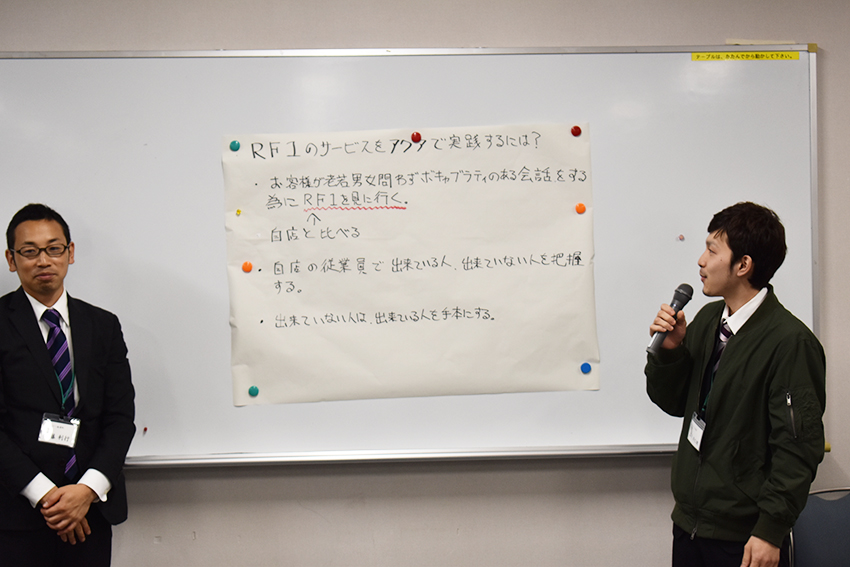 テーブルは、たたんでから動かして下さい。
RF1のサービスをアクアで実践するには?
・お客様が老若男女問わずボキャブラティのある会話をする
為にRF1を見に行く。
↑
自店と比べる
・自店の従業員で出来ている人、出来ていない人を把握
する。
・出来ていない人は、出来ている人を手本にする。